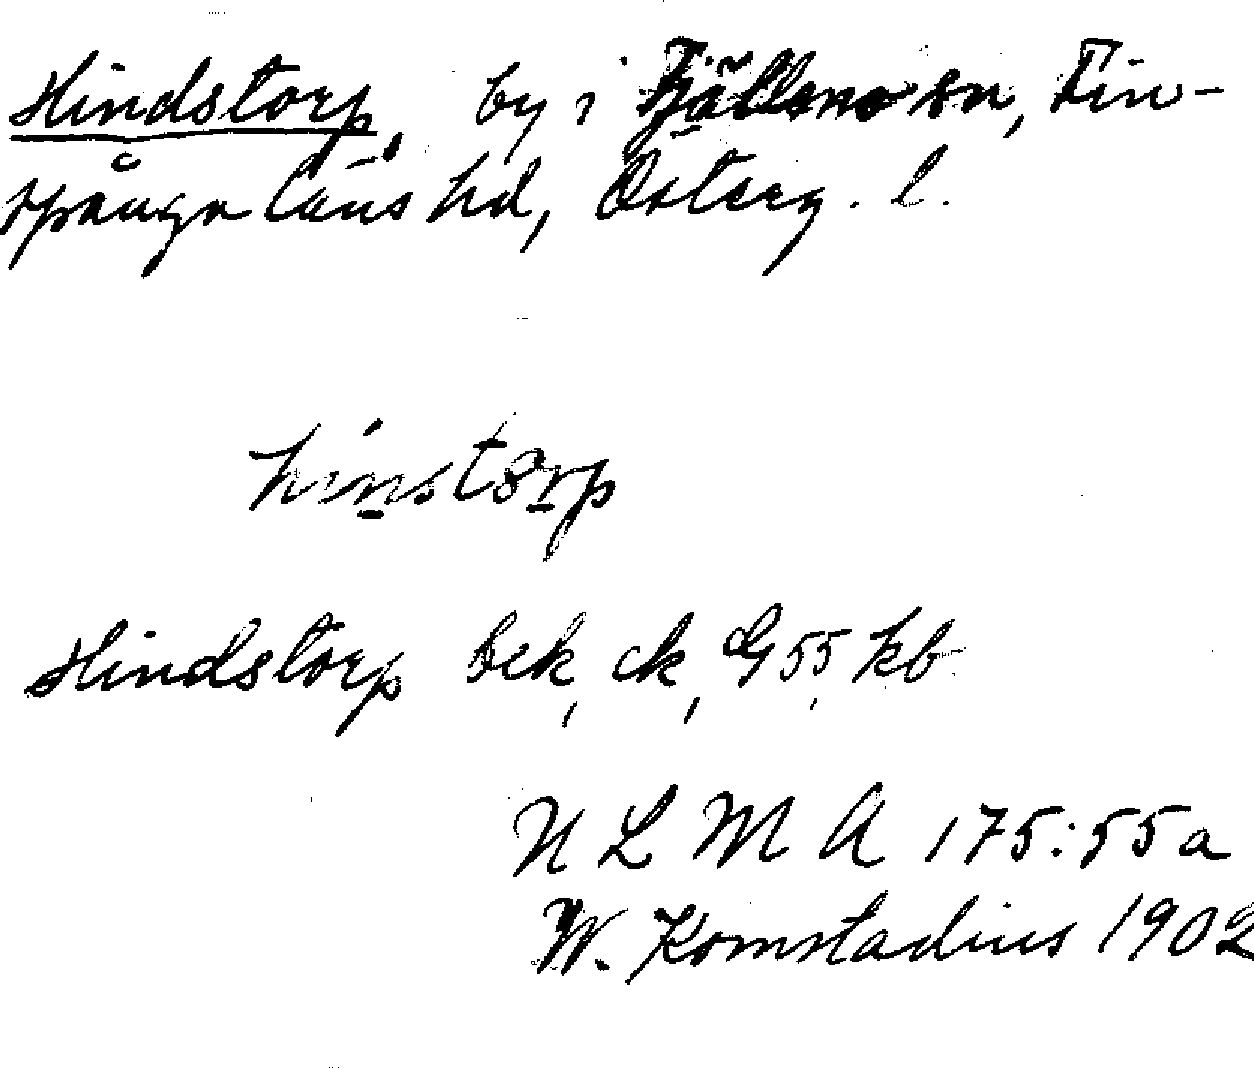 Hindstorp, by i Tjällmo sn, Fin-
spånga läns hd, Österg. l.
hinstorp
Hindstorp bek, ck, G 55 kb
N L M A 175:55a
W. Komstadius 1902